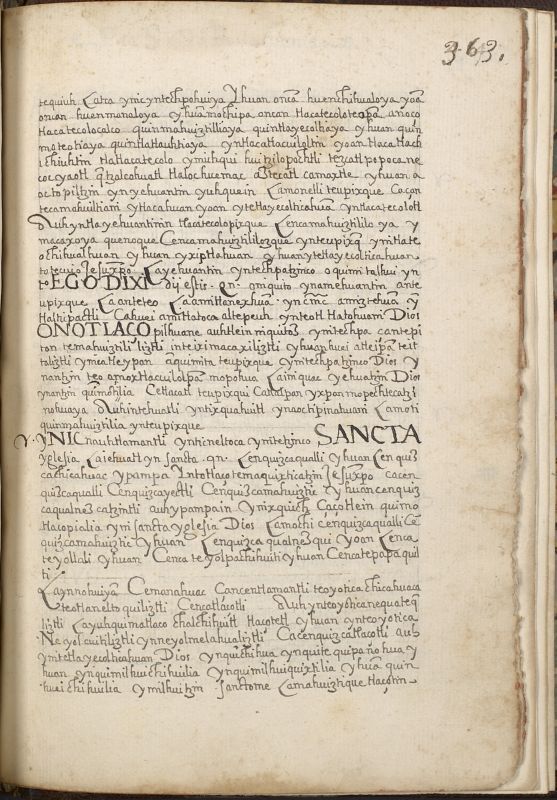 363.
tequiuh Catca ynic yntechpohuiya yhuan onca huenchihualoya yoā
oncan huenmanaloya yhuā mochipa oncan tlacatecolotepā anoço
tlacatecolocalco quinmahuiztiliaya quintlayecoltiaya yhuan quin
moteotiaya quintlatlauhtiaya yntlacatlacuiloltin yoan tlacatlach
chiuhtin tlatlacatecolo ynmihqui huitzilopochtli tezcatlpopoca ne
coc yaotl q̄tzalcohuatl tlalochuemac
octopiltzin ynyehuantin yuhquain Camonelli teupixque Caçan
tecamahuiltiani ytlacahuan yoan ytetlayecolticahuā yntlacatecolotl
Auhyntlayehuantinin tlacatecolopixque Cencamahuiztililo ya y
macaxoya quenoque Cencamahuiztililozque ynteupixq̄ ynitlate
ochihualhuan yhuan yxiptlahuan yhuan ytetlayecolticahuan
totecuiyo Jesuxpo. Cayehuantin yntechpatzinco oquimitalhui yn
EGO DIXI Dij estis. qn. amquito ynamehuantin ante
upixque Caanteteo Caamitlanexhuā yn cmc amiztehuā y
tlaltipactli Cahuei amitlatoca altepeuh ynteotl tlatohuani Dios
ONOTLACO pilhuane auhtlein niquitoz ynitechpa cantepi
ton temahuiztililiztli inteiximacaxiliztli yhuan huei atleipā teit
taliztli ynicatleypan aquimita teupixque ynitechpatzinco Dios y
nantzin teo amoxtlacuilolpā mopohua Cainiquac yehuatzin Dios
ynantzin quimohtilia Cetlacatl teupixqui
nohuaya Auhintehuatli yntixquahuitl ynaoctipinahuani Camoti
quinmahuiztilia ynteupixque
YNIC nauhtlamantli yntineltoca ynitetzinco SANCTA
yglesia Caiehuatl yn sancta. qn. Cenquizcaqualli yhuan Cenquiz
cachicahuac ypampa yntotlaço temaquixticatzin Jesuxpo cacen
quizcaqualli Cenquizcayectli Cenquizcamahuiztic yhuan cenquiz
caqualnezcatzintli auhypampain ynixquich Caçotlein quimo
tlacopialia yni sancta yglesia Dios Camochi cenquizcaqualli Ce
quizcamahuiztic yhuan Cenquizca qualnezqui yoan Cenca
teyollali yhuan Cenca teyolpachihuiti yhuan Cencatepapaquil
ti
Caynnohuiyā Cemanahuac Cancentlamantli teoyotica chicahuaca
teotlaneltoquiliztli Cencatlaçotli Auhynteoyoticanequateq̄
liztli Cayuhquimotlaço chalchihuitl tlacotetl yhuan ynteoyotica
Neyolcuitiliztli ynneyolmelahualiztli Cacenquizcatlacotli Auh
ynitetlayecolticahuan Dios ynquichihua ynquitequipanohua y
huan ynquimilhuichihuilia ynquimilhuiquixtilia yhuā quin
huaichihuilia ymilhuitzin Sanctome Camahuiztique tlaçotin